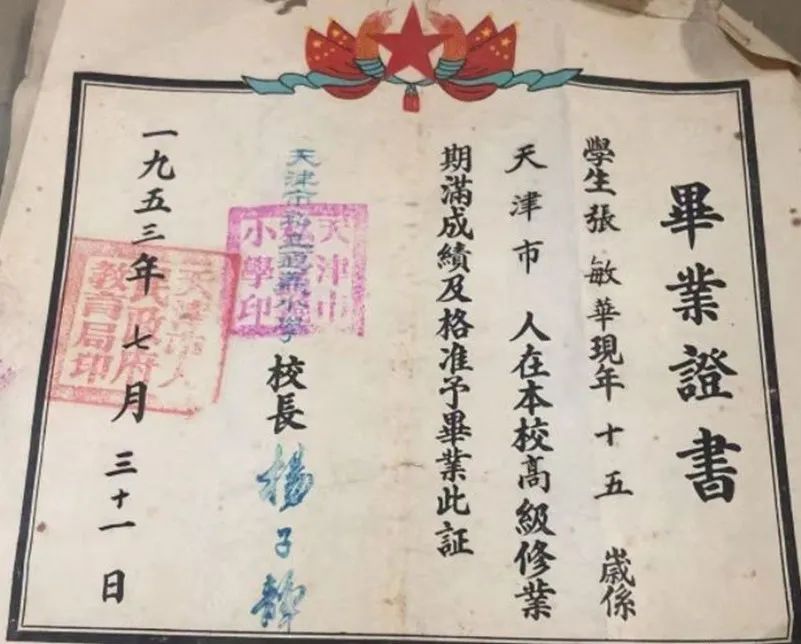 畢業證書
學生張敏華現年十五歲係
天津市 人在本校高級修業
期滿成績及格准予畢業此証
天津市私立小學 校長 楊子
天津市
小學印
一九五三年七月三十一日
天津市人
民政府
教育局印